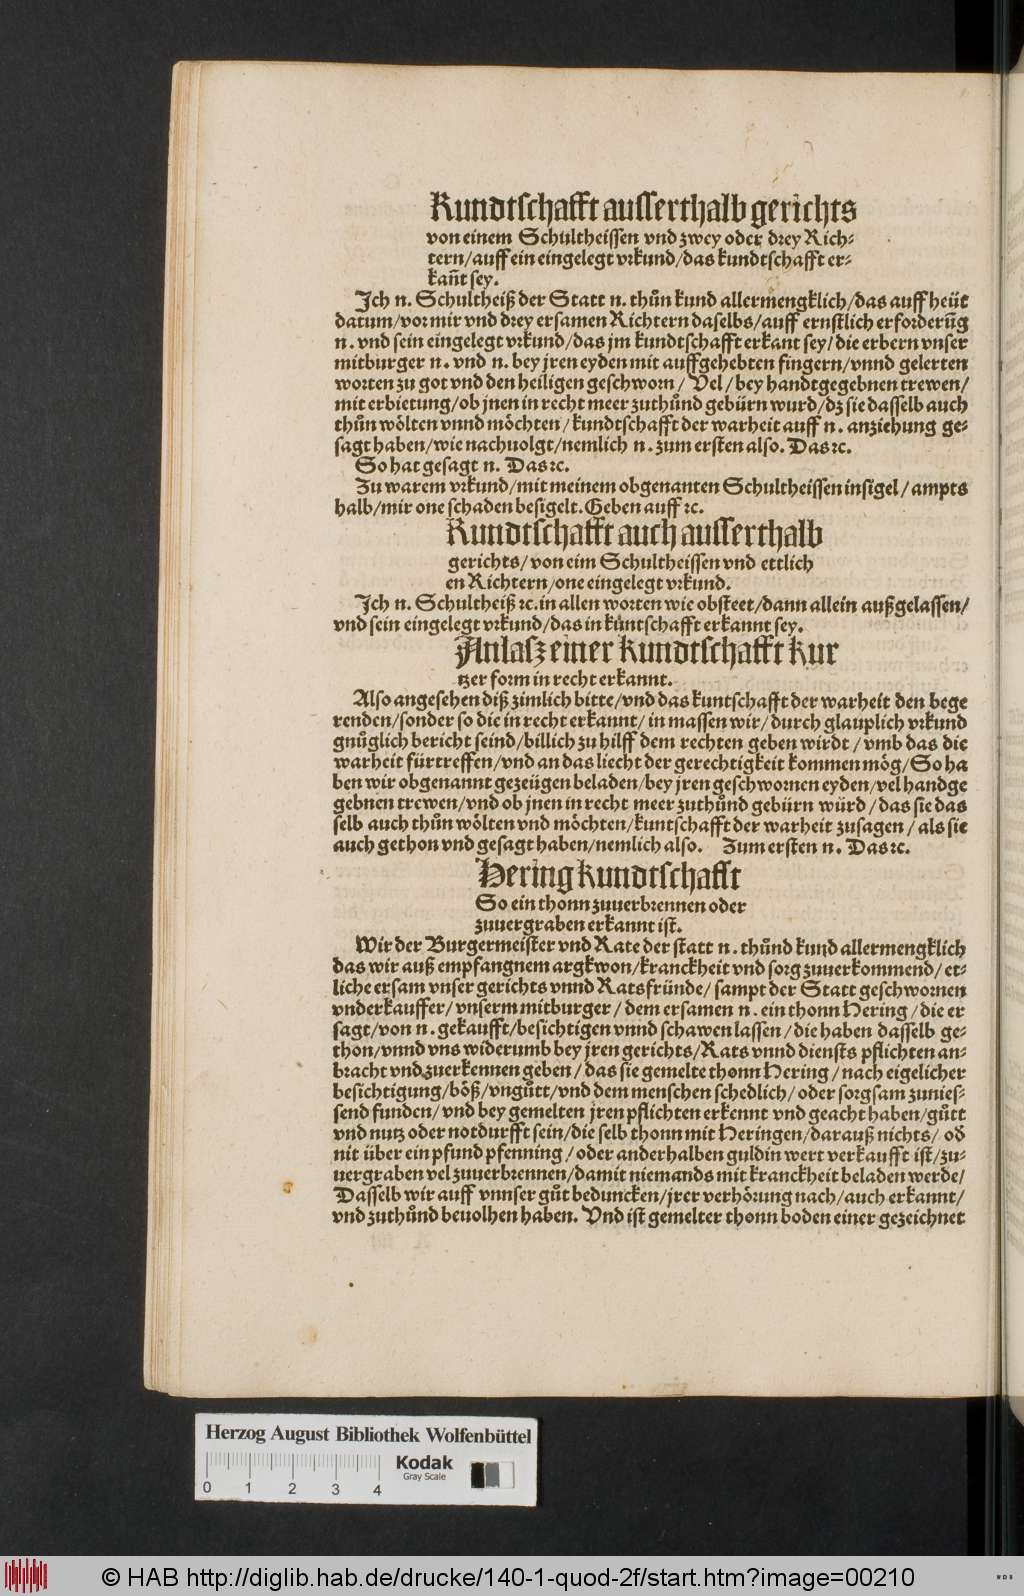 Kundtschafft ausserthalb gerichts
von einem Schultheissen vnd zwey oder drey Rich-
tern/auff ein eingelegt vrkund/das kundtschafft er-
kañt sey.
Ich n. Schultheiß der Statt n. thůn kund allermengklich/das auff heüt
datum/vor mir vnd drey ersamen Richtern daselbs/auff ernstlich erforderūg
n. vnd sein eingelegt vrkund/das jm kundtschafft erkant sey/die erbern vnser
mitburger n. vnd n. bey jren eyden mit auffgehebten fingern/vnnd gelerten
worten zu got vnd den heiligen geschworn/ Vel/bey handtgegebnen trewen/
mit erbietung/ob jnen in recht meer zuthůnd gebürn wurd/dz sie dasselb auch
thůn wölten vnnd möchten/kundtschafft der warheit auff n. anziehung ge-
sagt haben/wie nachuolgt/nemlich n. zum ersten also. Das ꝛc.
So hat gesagt n. Das ꝛc.
Zu warem vrkund/mit meinem obgenanten Schultheissen insigel/ampts
halb/mir one schaden besigelt. Geben auff ꝛc.
Kundtschafft auch ausserthalb
gerichts/von eim Schultheissen vnd ettlich
en Richtern/one eingelegt vrkund.
Ich n. Schultheiß ꝛc. in allen worten wie obsteet/dann allein außgelassen/
vnd sein eingelegt vrkund/das in kuntschafft erkannt sey.
Anlasz einer kundtschafft kur
tzer form in recht erkannt.
Also angesehen diß zimlich bitte/vnd das kuntschafft der warheit den bege
renden/sonder so die in recht erkannt/in massen wir/durch glauplich vrkund
gnůglich bericht seind/billich zu hilff dem rechten geben wirdt/vmb das die
warheit fürtreffen/vnd an das liecht der gerechtigkeit kommen mög/So ha
ben wir obgenannt gezeügen beladen/bey jren geschwornen eyden/vel handge
gebnen trewen/vnd ob jnen in recht meer zuthůnd gebürn würd/das sie das
selb auch thůn wölten vnd möchten/kuntschafft der warheit zusagen/als sie
auch gethon vnd gesagt haben/nemlich also. Zum ersten n. Das ꝛc.
Hering kundtschafft
So ein thonn zuuerbrennen oder
zuuergraben erkannt ist.
Wir der Burgermeister vnd Rate der statt n. thůnd kund allermengklich
das wir auß empfangnem argkwon/kranckheit vnd sorg zuuerkommend/et-
liche ersam vnser gerichts vnnd Ratsfründe/sampt der Statt geschwornen
vnderkauffer/vnserm mitburger/dem ersamen n. ein thonn Hering/die er
sagt/von n. gekaufft/besichtigen vnnd schawen lassen/die haben dasselb ge-
thon/vnnd vns widerumb bey jren gerichts/Rats vnnd diensts pflichten an-
bracht vnd zuerkennen geben/das sie gemelte thonn Hering/nach eigelicher
besichtigung/böß/vngůtt/vnd dem menschen schedlich/oder sorgsam zunies-
send funden/vnd bey gemelten jren pflichten erkennt vnd geacht haben/gůtt
vnd nutz oder notdurfft sein/die selb thonn mit Heringen/darauß nichts/od̄
nit über ein pfund pfenning/oder anderhalben guldin wert verkaufft ist/zu-
uergraben vel zuuerbrennen/damit niemands mit kranckheit beladen werde/
Dasselb wir auff vnnser gůt beduncken/jrer verhörung nach/auch erkannt/
vnd zuthůnd beuolhen haben. Vnd ist gemelter thonn boden einer gezeichnet
Herzog August Bibliothek Wolfenbüttel
Kodak
Gray Scale
0 1 2 3 4
© HAB http://diglib.hab.de/drucke/140-1-quod-2f/start.htm?image=00210